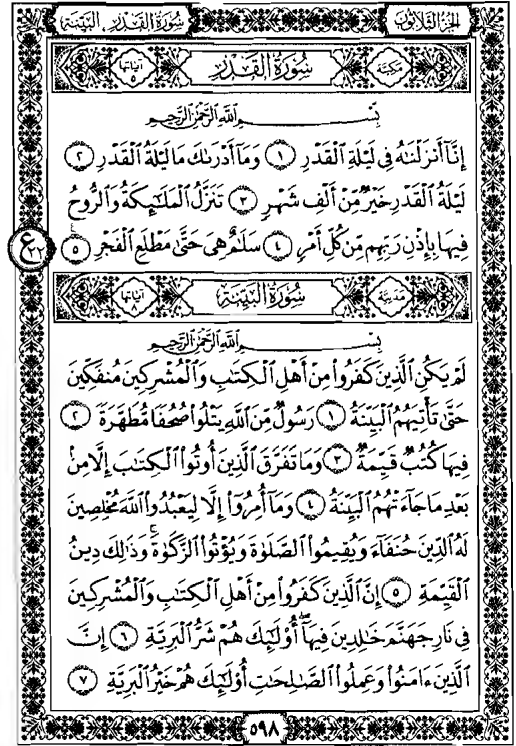 الجزء الثلاثون سورة القدر ـ البينة
مكية سورة القدر آياتها ٥
بِسْمِ ٱللَّهِ ٱلرَّحْمَٰنِ ٱلرَّحِيمِ
إِنَّآ أَنزَلْنَٰهُ فِى لَيْلَةِ ٱلْقَدْرِ ١ وَمَآ أَدْرَىٰكَ مَا لَيْلَةُ ٱلْقَدْرِ ٢
لَيْلَةُ ٱلْقَدْرِ خَيْرٌ مِّنْ أَلْفِ شَهْرٍ ٣ تَنَزَّلُ ٱلْمَلَٰٓئِكَةُ وَٱلرُّوحُ
فِيهَا بِإِذْنِ رَبِّهِم مِّن كُلِّ أَمْرٍ ٤ سَلَٰمٌ هِىَ حَتَّىٰ مَطْلَعِ ٱلْفَجْرِ ٥
ع ٢٢
مدنية سورة البينة آياتها ٨
بِسْمِ ٱللَّهِ ٱلرَّحْمَٰنِ ٱلرَّحِيمِ
لَمْ يَكُنِ ٱلَّذِينَ كَفَرُوا۟ مِنْ أَهْلِ ٱلْكِتَٰبِ وَٱلْمُشْرِكِينَ مُنفَكِّينَ
حَتَّىٰ تَأْتِيَهُمُ ٱلْبَيِّنَةُ ١ رَسُولٌ مِّنَ ٱللَّهِ يَتْلُوا۟ صُحُفًا مُّطَهَّرَةً ٢
فِيهَا كُتُبٌ قَيِّمَةٌ ٣ وَمَا تَفَرَّقَ ٱلَّذِينَ أُوتُوا۟ ٱلْكِتَٰبَ إِلَّا مِنۢ
بَعْدِ مَا جَآءَتْهُمُ ٱلْبَيِّنَةُ ٤ وَمَآ أُمِرُوٓا۟ إِلَّا لِيَعْبُدُوا۟ ٱللَّهَ مُخْلِصِينَ
لَهُ ٱلدِّينَ حُنَفَآءَ وَيُقِيمُوا۟ ٱلصَّلَوٰةَ وَيُؤْتُوا۟ ٱلزَّكَوٰةَ وَذَٰلِكَ دِينُ
ٱلْقَيِّمَةِ ٥ إِنَّ ٱلَّذِينَ كَفَرُوا۟ مِنْ أَهْلِ ٱلْكِتَٰبِ وَٱلْمُشْرِكِينَ
فِى نَارِ جَهَنَّمَ خَٰلِدِينَ فِيهَآ أُو۟لَٰٓئِكَ هُمْ شَرُّ ٱلْبَرِيَّةِ ٦ إِنَّ
ٱلَّذِينَ ءَامَنُوا۟ وَعَمِلُوا۟ ٱلصَّٰلِحَٰتِ أُو۟لَٰٓئِكَ هُمْ خَيْرُ ٱلْبَرِيَّةِ ٧
٥٩٨